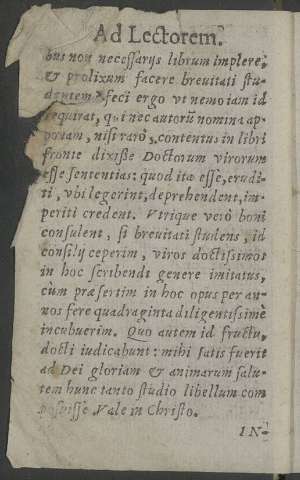 Ad Lectorem.
bus non necessarijs librum implere,
& prolixum facere breuitati stu-
dentem feci ergo vt nemo iam id
requirat, qui nec autorũ nomina ap-
ponam, nisi rarò, contentus in libri
fronte dixisse Doctorum virorum
esse sententias: quod ita esse, erudi-
ti, vbi legerint, deprehendent, im-
periti credent. Vtrique verò boni
consulent, si breuitati studens, id
consilij ceperim, viros doctissimos
in hoc scribendi genere imitatus,
cùm præsertim in hoc opus per an-
nos fere quadraginta diligentissimè
incubuerim. Quo autem id fructu,
docti iudicabunt: mihi satis fuerit
ad Dei gloriam & animarum salu-
tem hunc tanto studio libellum com
posuisse. Vale in Christo.
IN-